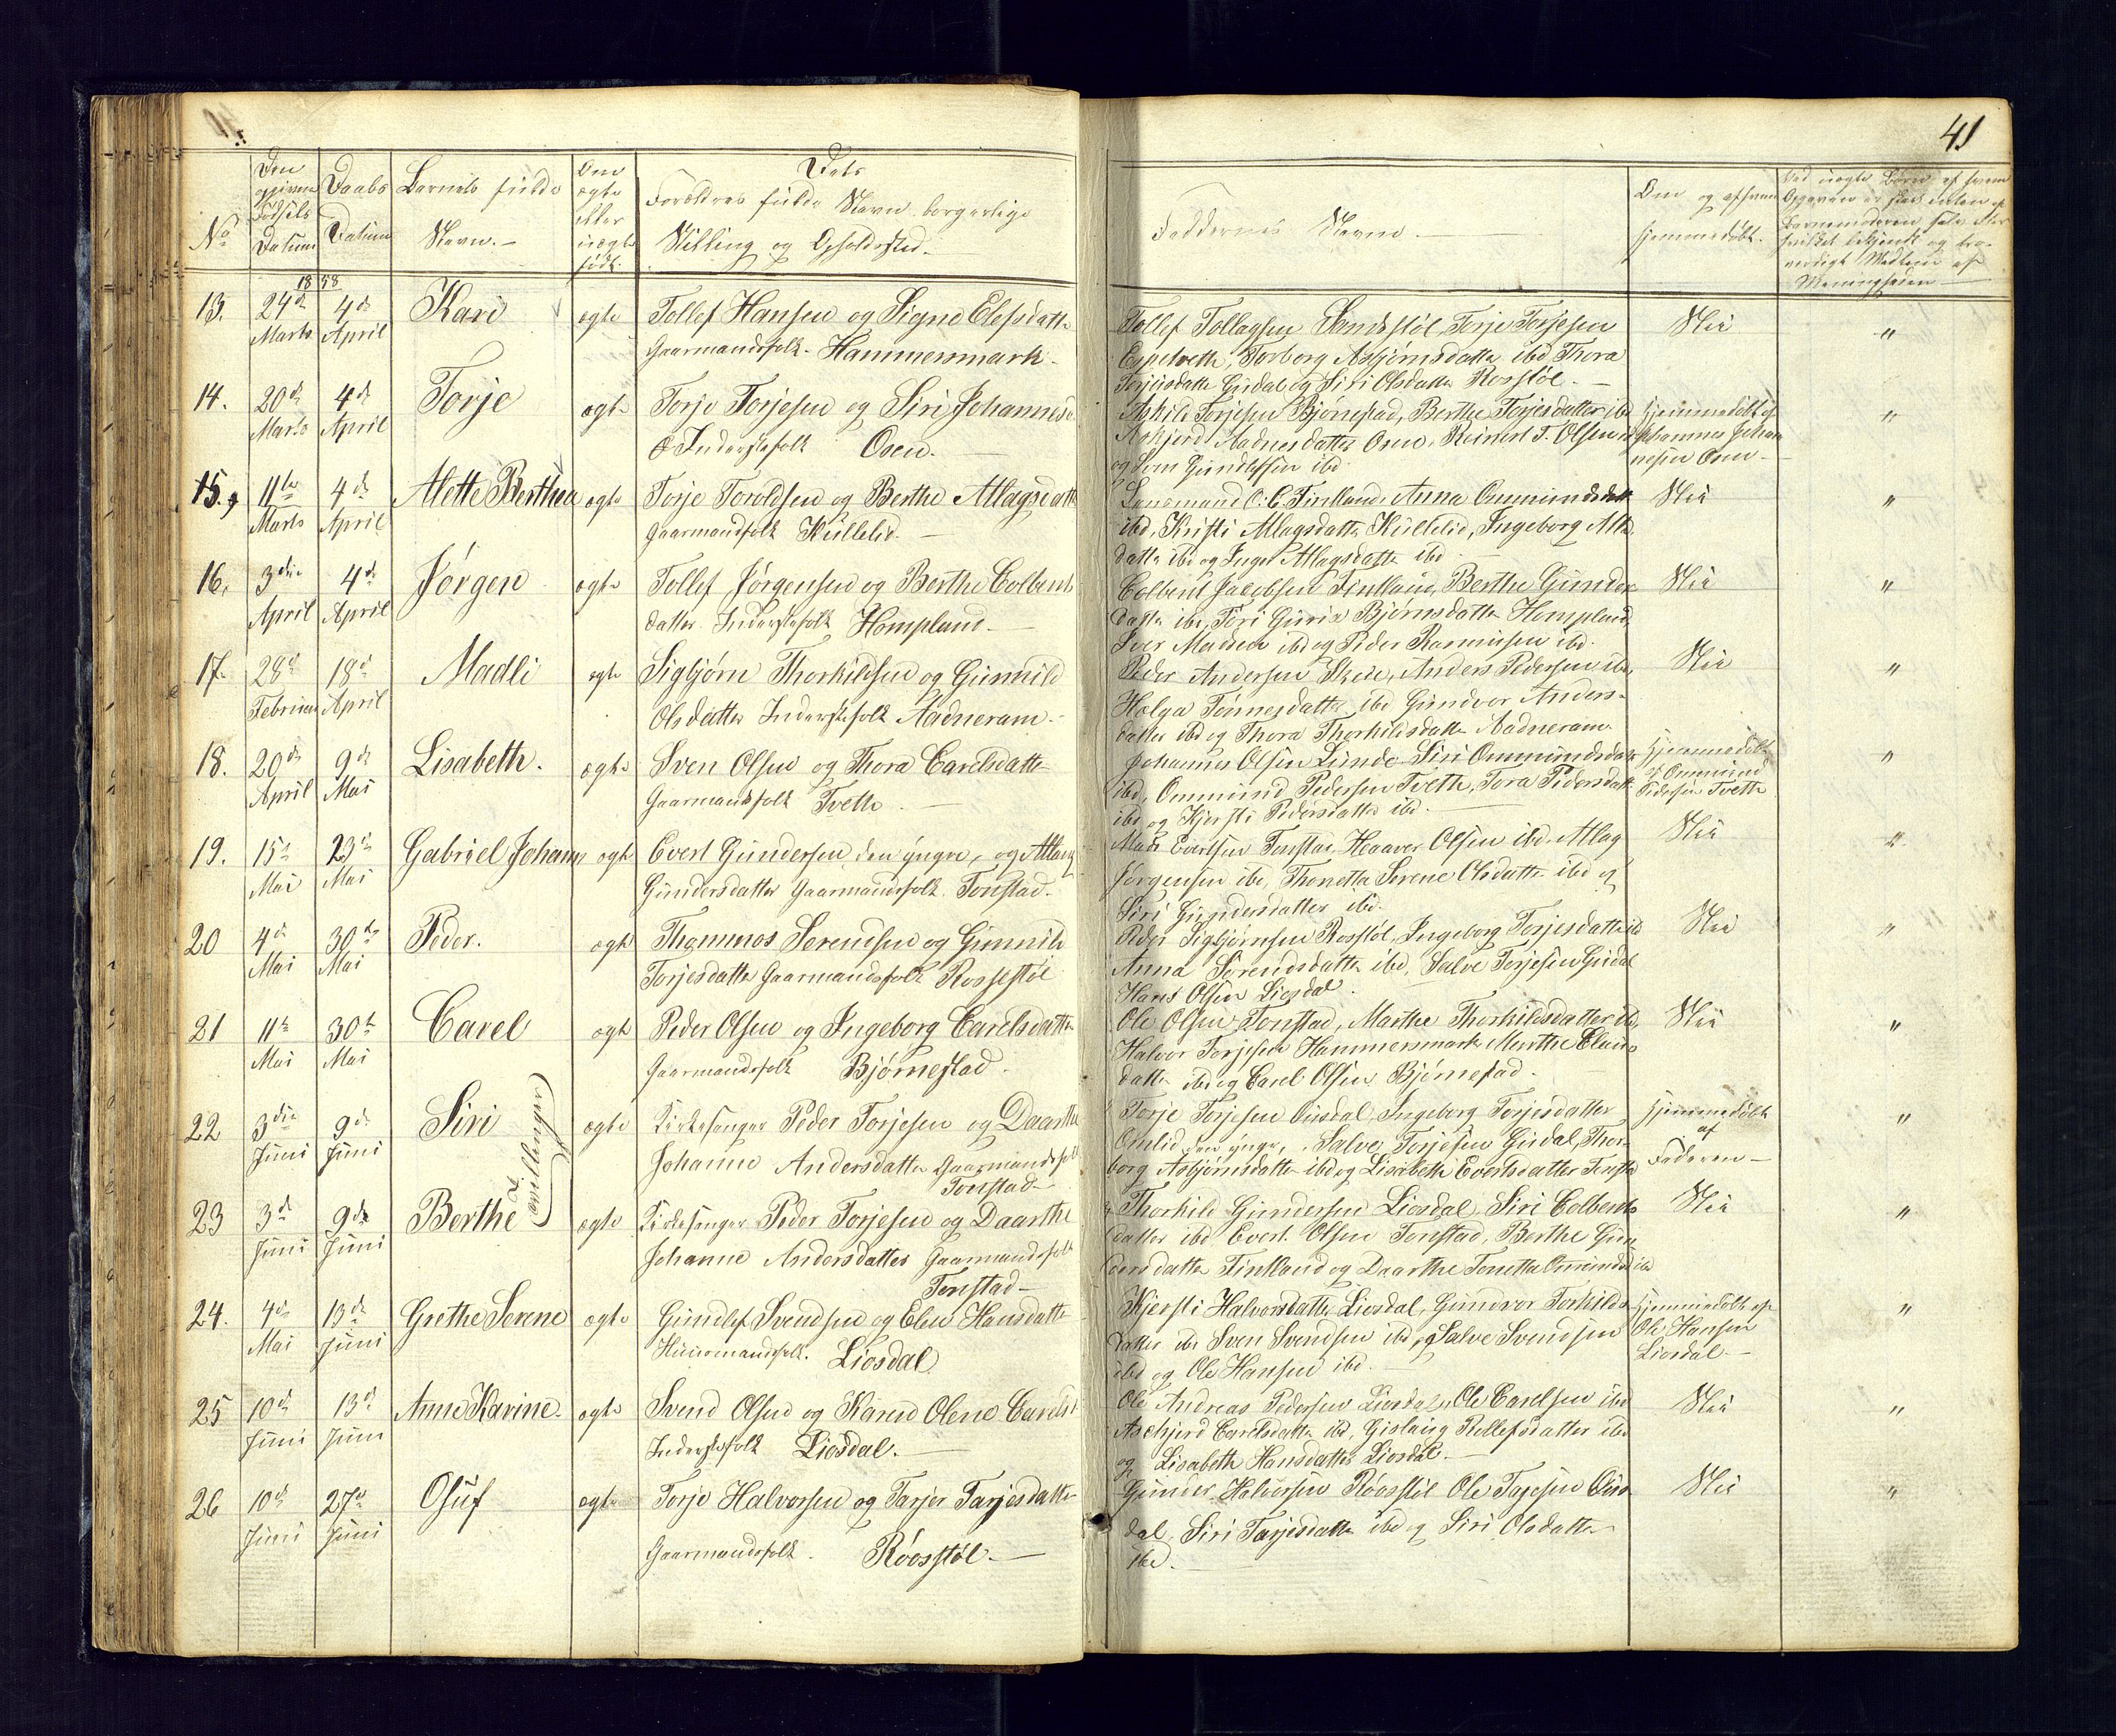 41
No
Den opgivne Fødsels Datum
Daabs Datum
Barnets fulde Navn.
Om ægte eller uægte født.
Dets
Forældres fulde Navn borgerlige
Stilling og Opholdssted.
Faddernes Navne.
Om og af hvem
hjemmedøbt.
1858
13. 24d 4d Kari ægte Tollef Hansen og Signe Elefsdatter
Marts April Gaarmandsfolk. Hammersmark.
Tollef Tollagsen Torje Torjesen
Torborg Asbjørnsdatter ibd Thora
Torjeisdatter Girdal og Siri Olsdatter Rosstøl.
Nei "
14. 20de 4de Torje ægte Torje Torjesen og Siri Johannesd
Marts April Inderstefolk Osen.
Torjesen Bjørnestad, Berthe Torjesdatter ibd
Aadnesdatter Osen, Reinert T. Olsen
og Gundlefsen ibd
Hjemmedøbt af
Johannes Johan
nesen Osen "
15. 11te 4de Alette Berthea ægte Torje Toroldsen og Berthe Atlagsdatter
Marts April Gaarmandsfolk Kullelid.
Lensmand O. C. Finkland, Anna Ommundsdatt
ibd, Kirsti Atlagsdatter Kullelid, Ingeborg
datter ibd og Inger Atlagsdatter ibd
Nei "
16. 3die 4de Jørgen ægte Tollef Jørgensen og Berthe Colbents
April April datter Inderstefolk Hompland.
Colbent Jacobsen Finkland, Berthe Gunders
datter ibd, Guri Bjørnsdatter Hompland,
Iver Madsen ibd og Peder Rasmusen ibd.
Nei "
17. 28d 18d Madli ægte Sigbjørn Thorkildsen og Gunnild
Februar April Olsdatter Inderstefolk Aadneram.
Peder Andersen Anders Pedersen ibd,
Helga Tønnesdatter ibd Gundvor Anders-
datter ibd og Thora Thorkildsdatter Aadneram
Nei "
18. 20de 9de Lisabeth. ægte Sven Olsen og Thora Carelsdatter
April Mai Gaarmandsfolk Tveth
Johannes Olsen Lunde Siri Ommundsdatter
ibd, Ommund Pedersen Tveth, Tora Pedersdatt
ibd og Kjersti Pedersdatter ibd.
Hjemmedøbt
af Ommund
Pedersen Tveth "
19. 15d 23d Gabriel Johan ægte Evert Gundersen den yngre, og Atlang
Mai Mai Gundersdatter Gaarmandsfolk Tonstad.
Mads Evertsen Tonstad, Haaver Olsen ibd. Atlag
Jørgensen ibd, Thonetta Serene Olsdatter ibd og
Siri Gundersdatter ibd.
Nei "
20 4d 30te Peder. ægte Thommas Serendsen og Gunnild
Mai Mai Torjesdatter Gaarmandsfolk Rossestøl
Peder Sigbjørnsen Rosstøl, Ingeborg Torjesdatter ibd
Anna Sørensdatter ibd, Salve Torjesen Girdal
Hans Olsen Liosdal.
Nei "
21 11te 30te Carel ægte Peder Olsen og Ingeborg Carelsdatter
Mai Mai Gaarmandsfolk Bjørnestad.
Ole Olsen Tonstad, Marthe Thorkildsdatter ibd,
Halvor Torjesen Hammersmark Marthe
datter ibd og Carel Olsen Bjørnestad.
Nei "
22 3die 9de Siri Tvillinger ægte Kirkesanger Peder Torjesen og Daarthe
Juni Juni Johanne Andersdatter Gaarmandsfolk
Tonstad
Torje Torjesen Ousdal, Ingeborg Torjesdatter
Omlid den yngre, Salve Torjesen Girdal, Thor-
borg Asbjørnsdatter ibd og Lisabeth Evertsdatter Tonstad
Hjemmedøbt
af
Faderen "
23 3de 9de Berthe ægte Kirkesanger Peder Torjesen og Daarthe
Juni Juni Johanne Andersdatter Gaarmandsfolk
Tonstad
Thorkild Gundersen Liosdal, Siri Colbents
datter ibd Evert Olsen Tonstad, Berthe Gun
dersdatter Finkland og Daarthe Tonetta Ommundsd ibd
Nei "
24. 4de 13de Grethe Serene ægte Gundlef Svendsen og Elen Hansdatter
Mai Juni Huusmandsfolk. Liosdal
Kjersti Halvorsdatter Liosdal, Gundvor Torkilds
datter ibd Sven Svendsen ibd, og Salve Svendsen
ibd og Ole Hansen ibd.
Hjemmedøbt af
Ole Hansen
Liosdal. "
25 10de 13de Anne Karine. ægte Svend Olsen og Karen Olene Carelsd
Juni Juni Inderstefolk Liosdal.
Ole Andreas Pedersen Liosdal, Ole Carelsen ibd
Aschjerd Carelsdatter ibd, Gislaug Rollefsdatter ibd
og Lisabeth Hansdatter Liosdal.
Nei "
26 10de 27de Osuf ægte Torje Halvorsen og Tarjer Tarjesdatter
Juni Juni Gaarmandsfolk. Røosstøl.
Gunder Halvorsen Røosstøl Ole Tarjesen Ous
dal, Siri Tarjesdatter ibd og Siri Olsdatter
ibd.
Nei "